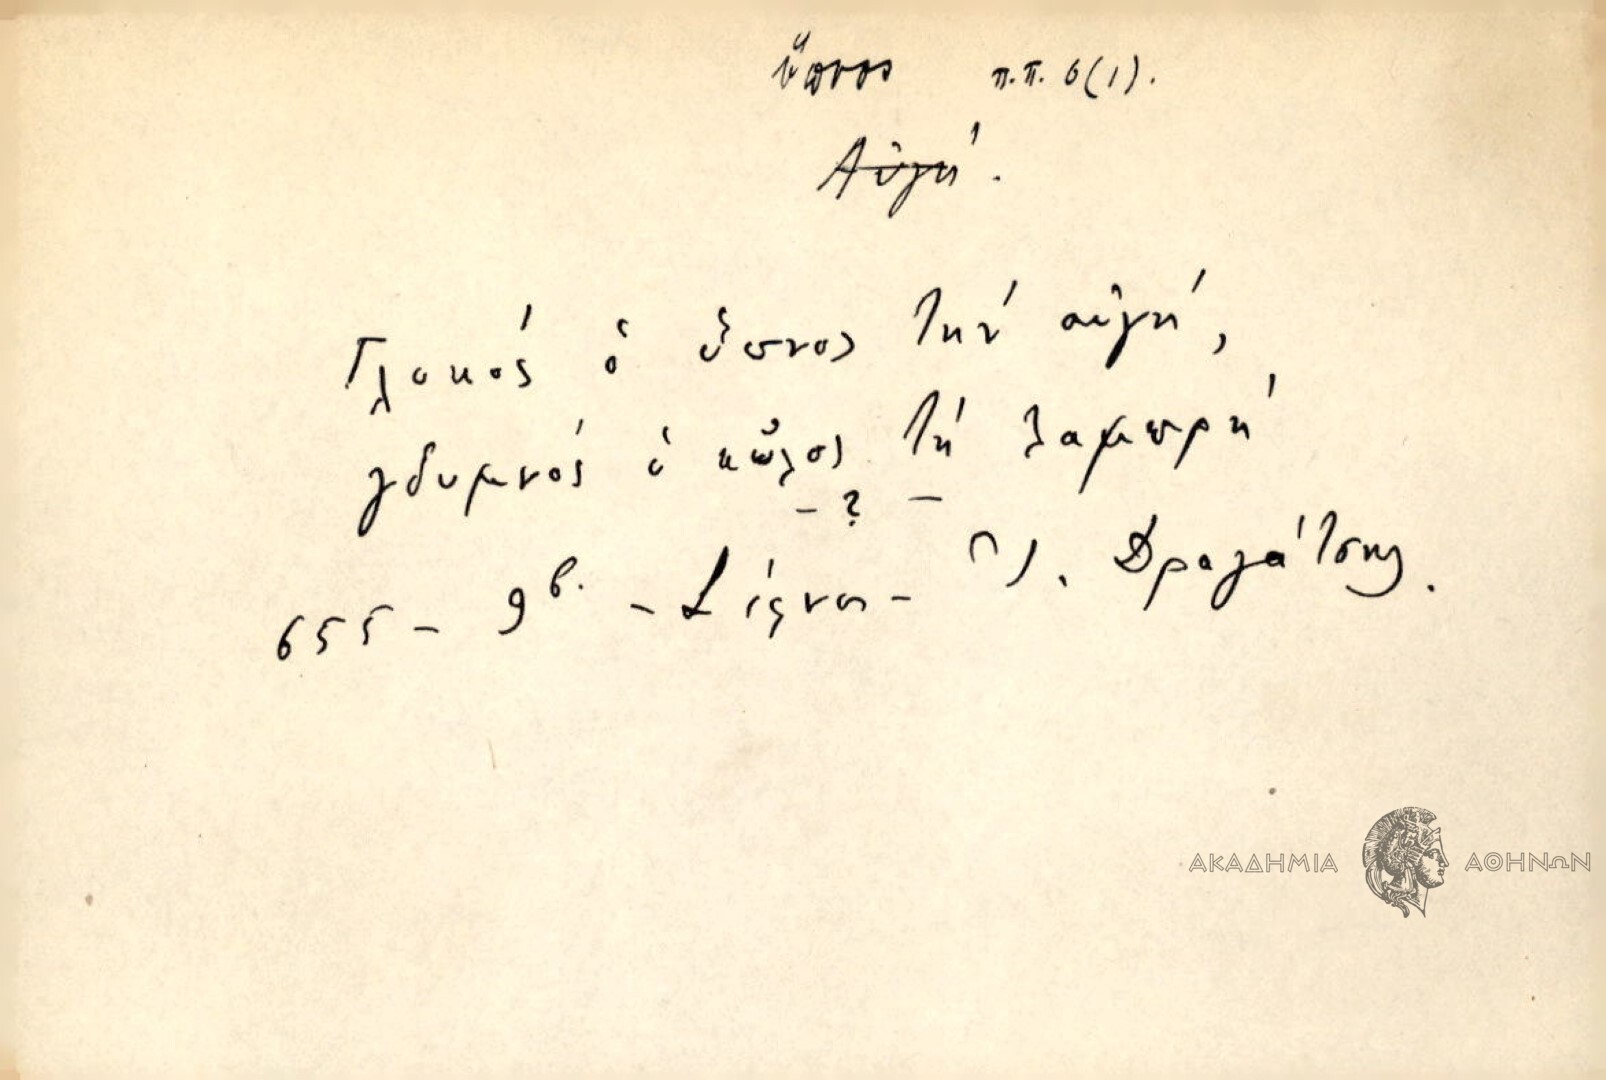 ὕπνος π.π. 6(1).
Αὐγή.
Γλυκός ὁ ὕπνος τήν αὐγή,
γδυμνός ὁ κῶλος τή λαμπρή
- ? -
655 - 9β. - Σίφνου - Δραγάτσης.
ΑΚΑΔΗΜΙΑ ΑΘΗΝΩΝ